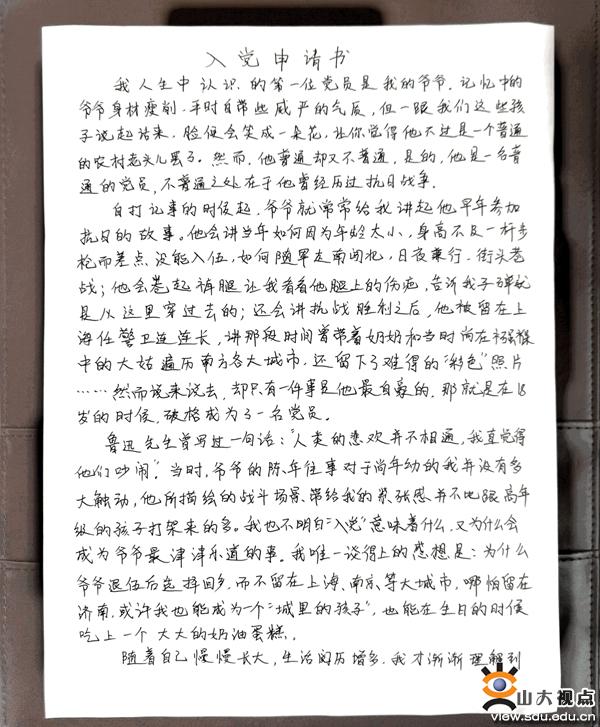 入党申请书
我人生中认识的第一位党员是我的爷爷。记忆中的
爷爷身材瘦削,平时自带些威严的气质,但一跟我们这些孩
子说起话来,脸便会笑成一朵花,让你觉得他不过是一个普通
的农村老头儿罢了。然而,他普通却又不普通,是的,他是一名普
通的党员,不普通之处在于他曾经历过抗日战争。
自打记事的时候起,爷爷就常常给我讲起他早年参加
抗日的故事。他会讲当年如何因为年龄太小,身高不及一杆步
枪而差点没能入伍,如何随军走南闯北,日夜兼行,街头巷
战;他会卷起裤腿让我看看他腿上的伤疤,告诉我子弹就
是从这里穿过去的;还会讲抗战胜利之后,他被留在上
海任警卫连连长,讲那段时间曾带着奶奶和当时尚在襁褓
中的大姑遍历南方各大城市,还留下了难得的“彩色”照片
……然而说来说去,却只有一件事是他最自豪的,那就是在18
岁的时候,破格成为了一名党员。
鲁迅先生曾写过一句话:“人类的悲欢并不相通,我直觉得
他们吵闹”。当时,爷爷的陈年往事对于尚年幼的我并没有多
大触动,他所描绘的战斗场景带给我的紧张感并不比跟高年
级的孩子打架来的多。我也不明白“入党”意味着什么,又为什么会
成为爷爷最津津乐道的事。我唯一谈得上的感想是:为什么
爷爷退伍后选择回乡,而不留在上海、南京等大城市,哪怕留在
济南,或许我也能成为一个“城里的孩子”,也能在生日的时候
吃上一个大大的奶油蛋糕。
随着自己慢慢长大,生活阅历增多,我才渐渐理解到
山大视点
view.sdu.edu.cn